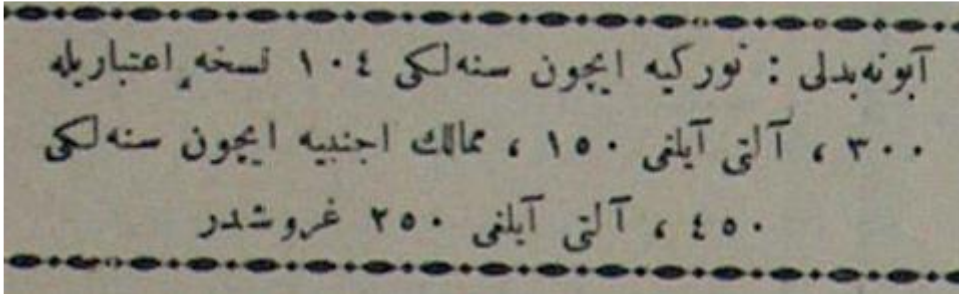 آبونه‌بدلی : تورکیه ایچون سنه‌لکی ١٠٤ نسخه اعتباریله
٣٠٠ ، آلتی آیلغی ١٥٠ ، ممالك اجنبیه ایچون سنه‌لکی
٤٥٠ ، آلتی آیلغی ٢٥٠ غروشدر